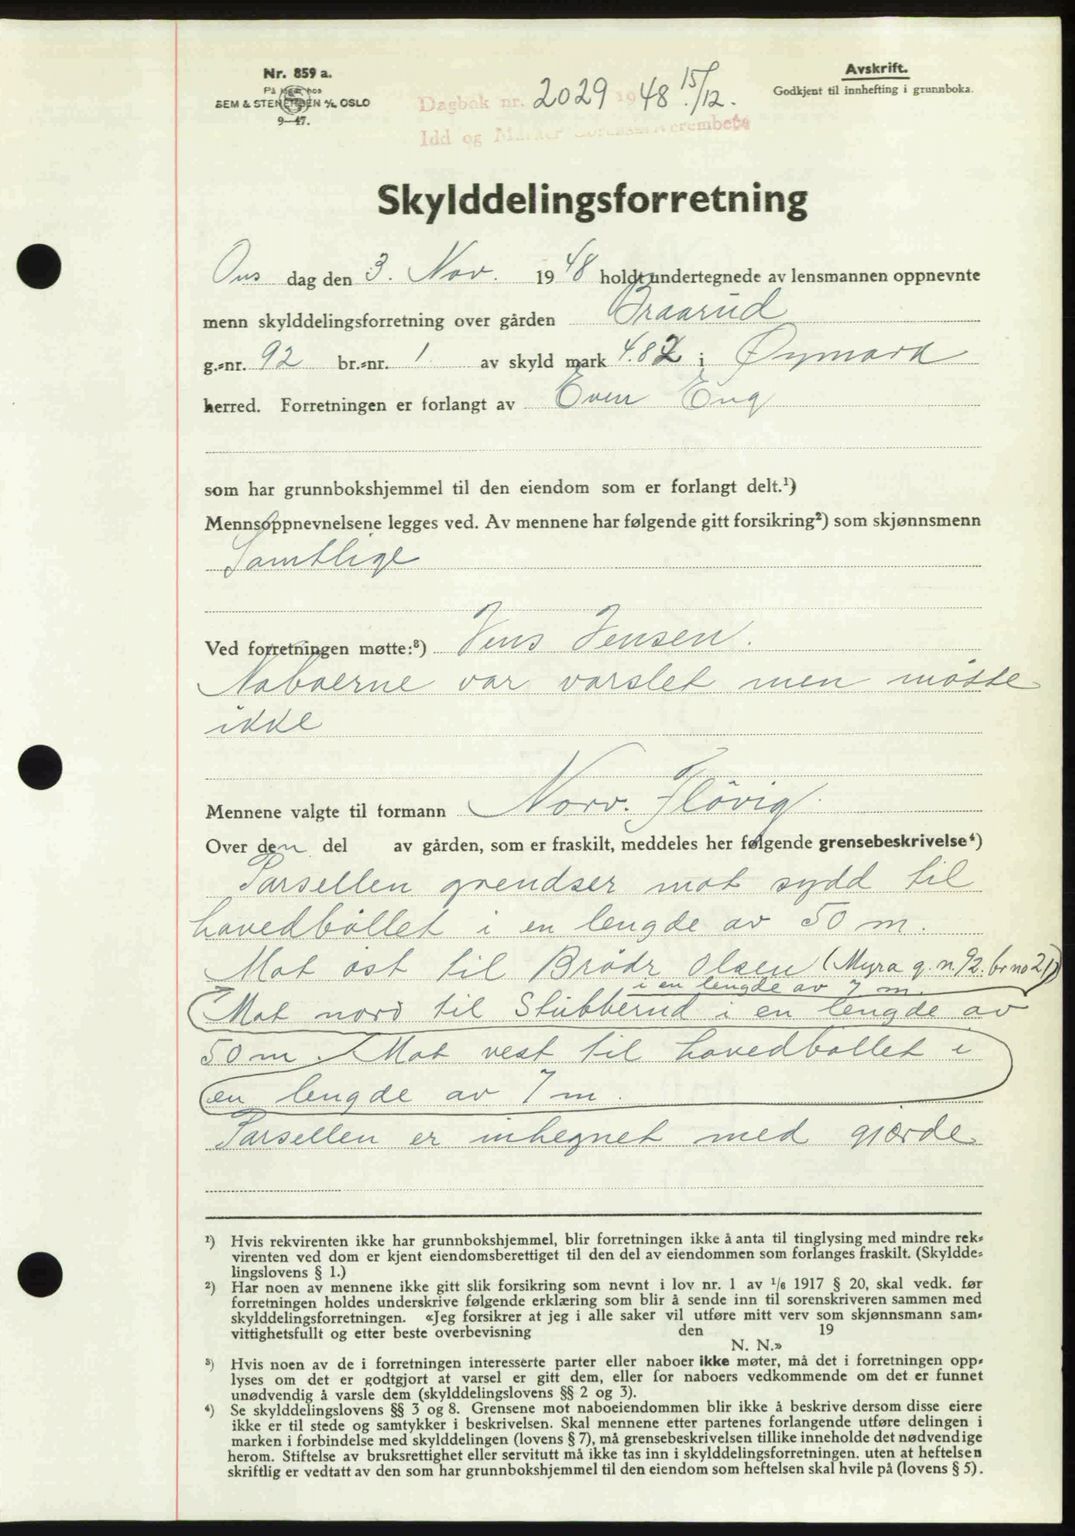 Nr. 859 a.
På lager hos
SEM & STENERSEN A/S, OSLO
9—47.
Dagbok nr. 2029 1948 15/12.
Idd og Marker Sorenskriverembete
Avskrift.
Godkjent til innhefting i grunnboka.
Skylddelingsforretning
Ons dag den 3. Nov. 1948 holdt undertegnede av lensmannen oppnevnte
menn skylddelingsforretning over gården Braarud
g.-nr. 92 br.-nr. 1 av skyld mark 4.82 i Øymark
herred. Forretningen er forlangt av Even Eng
som har grunnbokshjemmel til den eiendom som er forlangt delt.¹)
Mennsoppnevnelsene legges ved. Av mennene har følgende gitt forsikring²) som skjønnsmenn
Samtlige
Ved forretningen møtte:³) Jens Jensen.
Naboerne var varslet men møtte
ikke
Mennene valgte til formann Norv. Fløvig.
Over den del av gården, som er fraskilt, meddeles her følgende grensebeskrivelse⁴)
Parsellen grendser mot sydd til
hovedbøllet i en lengde av 50 m.
Mot øst til Brødr Olsen (Myra g.n. 92. br no 21)
i en lengde av 7 m.
Mot nord til Stubberud i en lengde av
50 m. Mot vest til hovedbøllet i
en lengde av 7 m.
Parsellen er inhegnet med gjærde.
¹) Hvis rekvirenten ikke har grunnbokshjemmel, blir forretningen ikke å anta til tinglysing med mindre rek-
virenten ved dom er kjent eiendomsberettiget til den del av eiendommen som forlanges fraskilt. (Skyldde-
lingslovens § 1.)
²) Har noen av mennene ikke gitt slik forsikring som nevnt i lov nr. 1 av 1/6 1917 § 20, skal vedk. før
forretningen holdes underskrive følgende erklæring som blir å sende inn til sorenskriveren sammen med
skylddelingsforretningen. «Jeg forsikrer at jeg i alle saker vil utføre mitt verv som skjønnsmann sam-
vittighetsfullt og etter beste overbevisning den 19
N. N.»
³) Hvis noen av de i forretningen interesserte parter eller naboer ikke møter, må det i forretningen opp-
lyses om det er godtgjort at varsel er gitt dem, eller for naboers vedkommende om det er funnet
unødvendig å varsle dem (skylddelingslovens §§ 2 og 3).
⁴) Se skylddelingslovens §§ 3 og 8. Grensene mot naboeiendommen blir ikke å beskrive dersom disse eiere
ikke er til stede og samtykker i beskrivelsen. Skal mennene etter partenes forlangende utføre delingen i
marken i forbindelse med skylddelingen (lovens § 7), må grensebeskrivelsen tillike inneholde det nødvendige
herom. Stiftelse av bruksrettighet eller servitutt må ikke tas inn i skylddelingsforretningen, uten at heftelsen
skriftlig er vedtatt av den som har grunnbokshjemmel til den eiendom som heftelsen skal hvile på (lovens § 5).